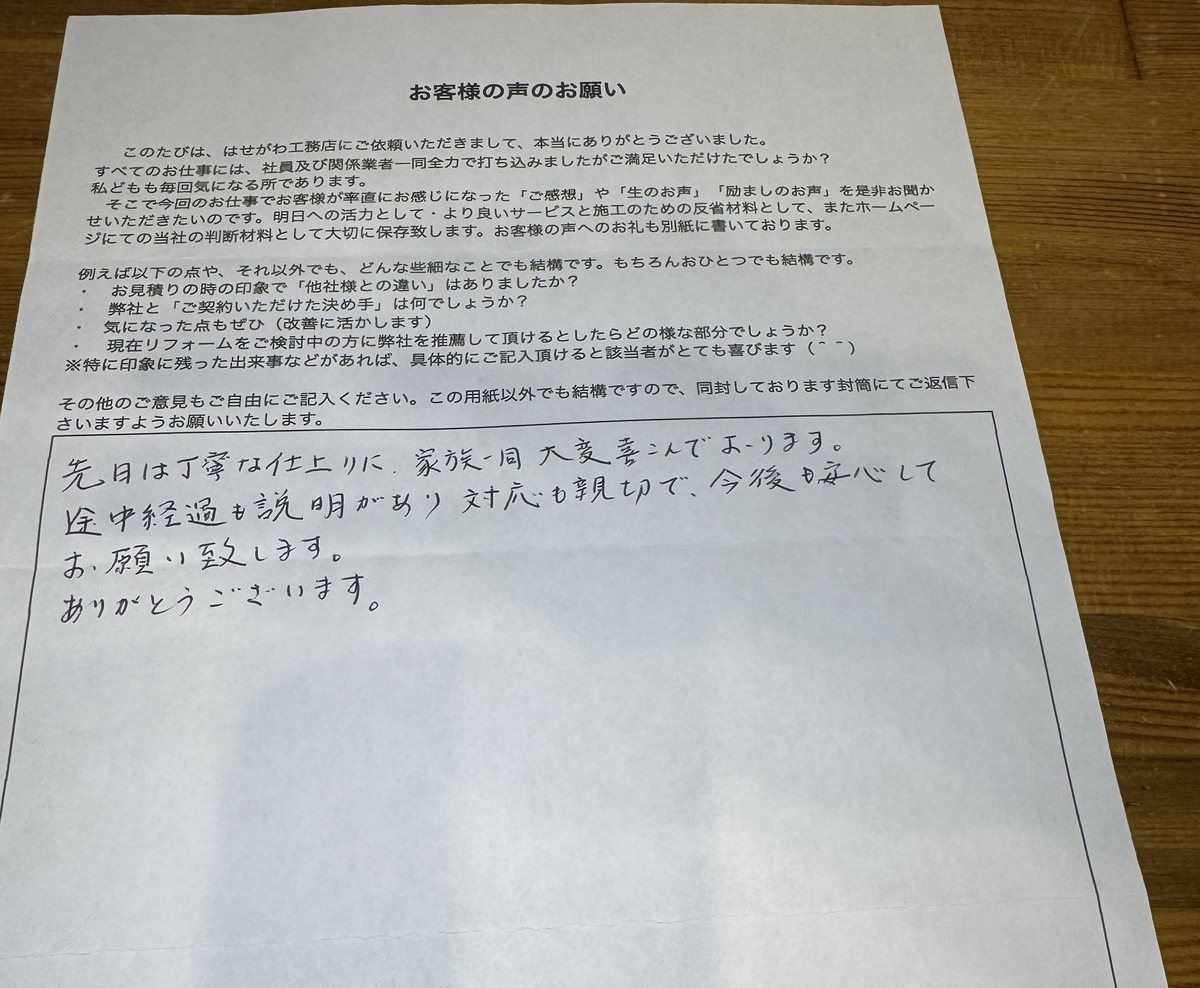 お客様の声のお願い
このたびは、はせがわ工務店にご依頼いただきまして、本当にありがとうございました。
すべてのお仕事には、社員及び関係業者一同全力で打ち込みましたがご満足いただけたでしょうか？
私どもも毎回気になる所であります。
そこで今回のお仕事でお客様が率直にお感じになった「ご感想」や「生のお声」「励ましのお声」を是非お聞か
せいただきたいのです。明日への活力として・より良いサービスと施工のための反省材料として、またホームペー
ジにての当社の判断材料として大切に保存致します。お客様の声へのお礼も別紙に書いております。
例えば以下の点や、それ以外でも、どんな些細なことでも結構です。もちろんおひとつでも結構です。
・ お見積りの時の印象で「他社様との違い」はありましたか？
・ 弊社と「ご契約いただけた決め手」は何でしょうか？
・ 気になった点もぜひ（改善に活かします）
・ 現在リフォームをご検討中の方に弊社を推薦して頂けるとしたらどの様な部分でしょうか？
※特に印象に残った出来事などがあれば、具体的にご記入頂けると該当者がとても喜びます（＾＾）
その他のご意見もご自由にご記入ください。この用紙以外でも結構ですので、同封しております封筒にてご返信下
さいますようお願いいたします。
先日は丁寧な仕上りに、家族一同大変喜こんでおります。
途中経過も説明があり対応も親切で、今後も安心して
お願い致します。
ありがとうございます。